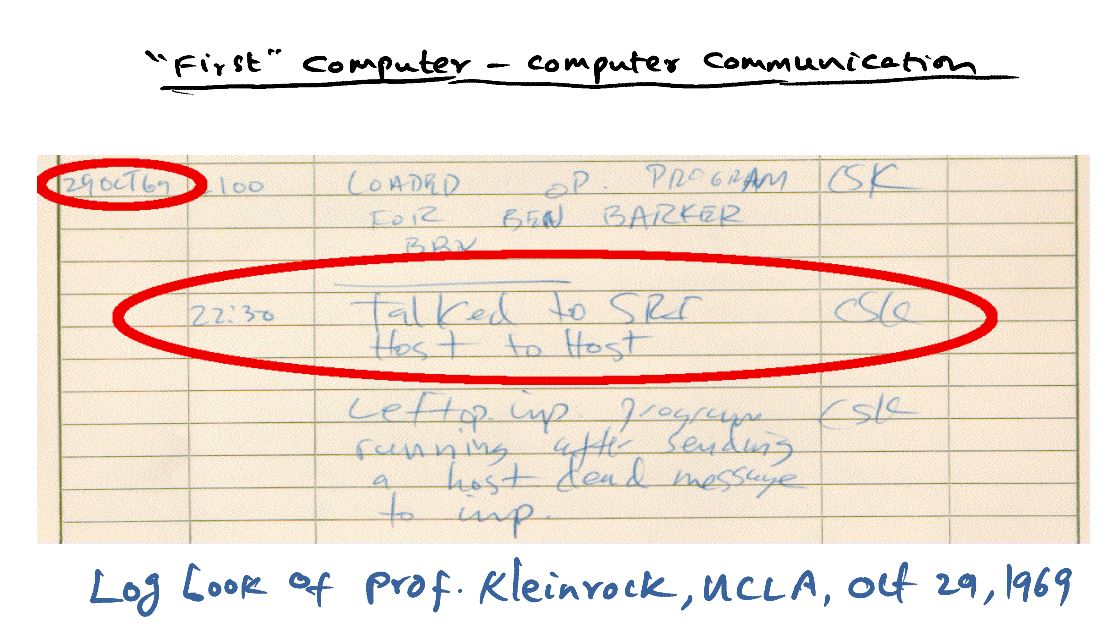 "First" Computer - computer Communication
29OCT69 2100 LOADED OP. PROGRAM CSK
FOR BEN BARKER
BBN
22:30 Talked to SRI CSK
Host to Host
Left op. imp. program CSK
running after sending
a host dead message
to imp.
Log book of Prof. Kleinrock, UCLA, Oct 29, 1969